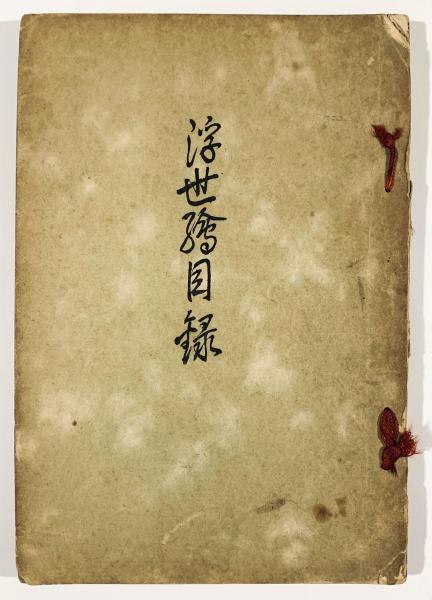 浮世繪目録